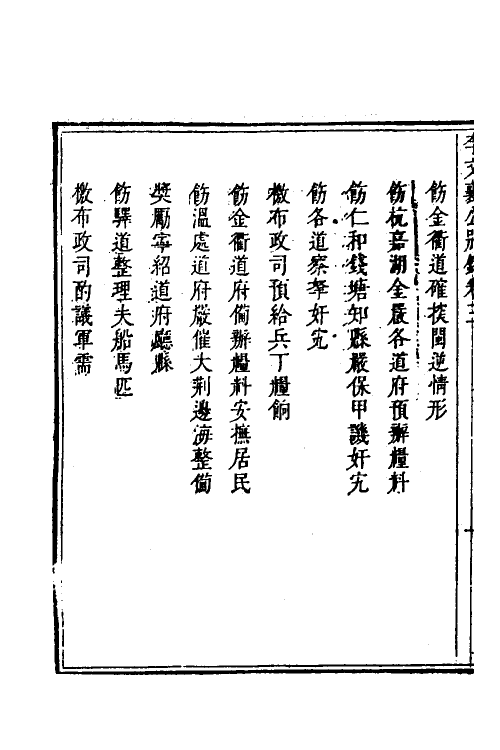 李文襄公別錄卷三
飭金衢道確探閩逆情形
飭杭嘉湖金嚴各道府預辦糧料
飭仁和錢塘知縣嚴保甲譏奸宄
飭各道察拏奸宄
檄布政司預給兵丁糧餉
飭金衢道府備辦糧料安撫居民
飭溫處道府嚴催大荆邊海整備
獎勵寧紹道府廳縣
飭驛道整理夫船馬匹
檄布政司酌議軍需